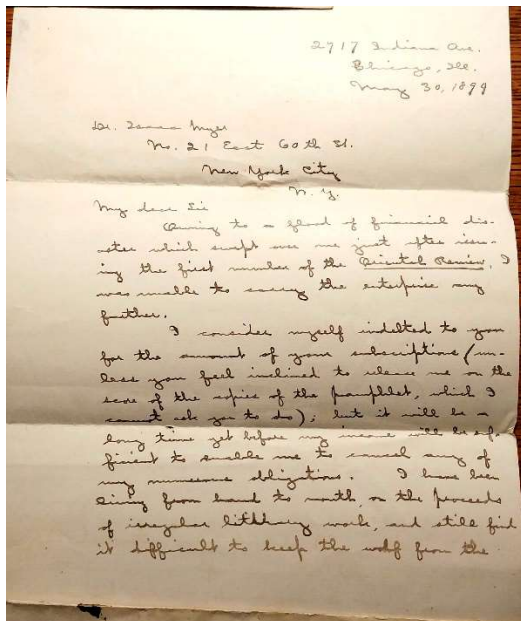 2717 Indiana Ave.
Chicago, Ill.
May 30, 1899
Dr. Isaac Myer
No. 21 East 60th St.
New York City
N. Y.
My dear Sir
Owing to a flood of financial dis-
aster which swept over me just after issu-
ing the first number of the Oriental Review, I
was unable to carry the enterprise any
further.
I consider myself indebted to you
for the amount of your subscriptions (un-
less you feel inclined to release me on the
score of the copies of the pamphlet, which I
cannot ask you to do); but it will be a
long time yet before my income will be suf-
ficient to enable me to cancel any of
my numerous obligations. I have been
living from hand to mouth, on the proceeds
of irregular literary work, and still find
it difficult to keep the wolf from the